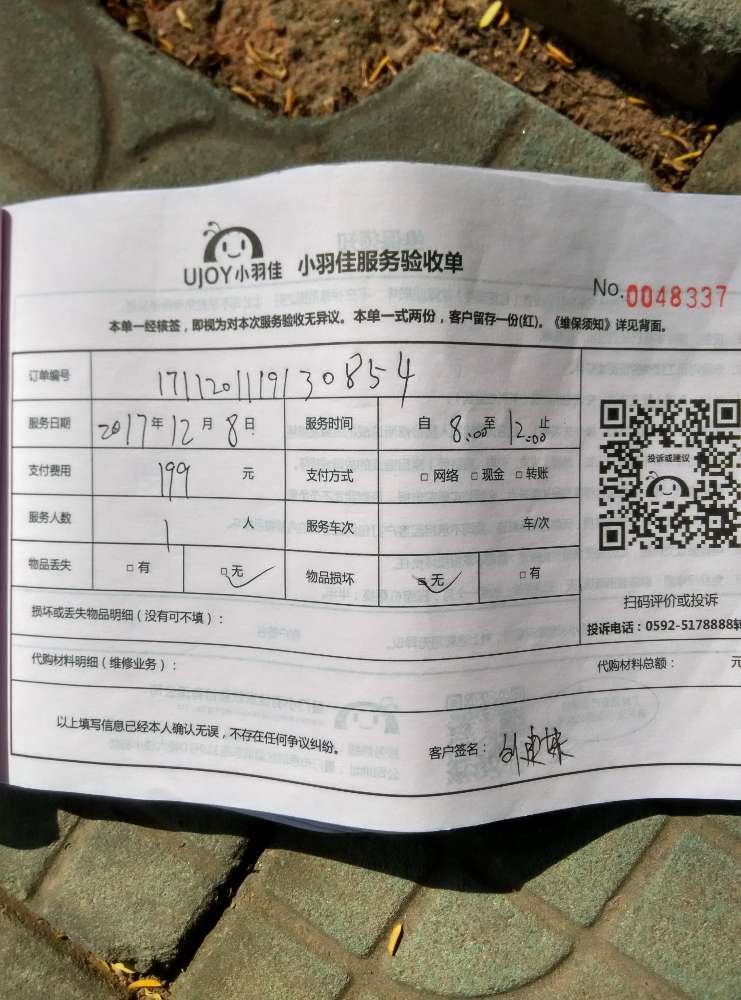 UJOY小羽佳 小羽佳服务验收单
No.0048337
本单一经核签，即视为对本次服务验收无异议。本单一式两份，客户留存一份(红)。《维保须知》详见背面。
订单编号 171120111913 0854
服务日期 2017年12月8日 服务时间 自8:00至12:00止
支付费用 199元 支付方式 □网络 □现金 □转账
服务人数 1人 服务车次 车/次
物品丢失 □有 □无 物品损坏 □无 □有
投诉或建议
扫码评价或投诉
投诉电话：0592-5178888转
损坏或丢失物品明细（没有可不填）：
代购材料明细（维修业务）： 代购材料总额： 元
以上填写信息已经本人确认无误，不存在任何争议纠纷。 客户签名：